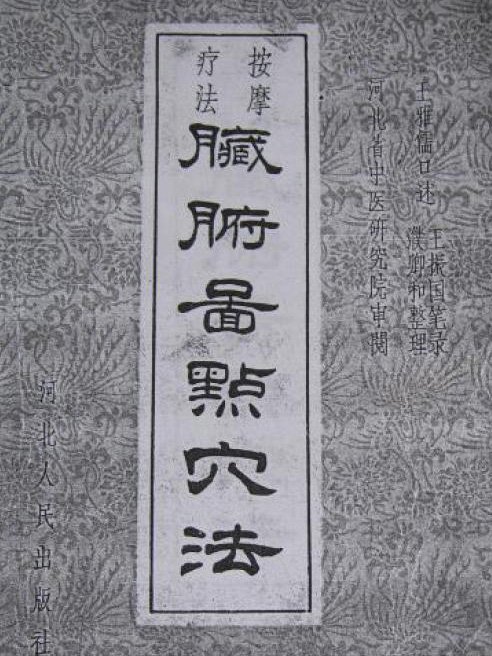 王雅儒口述
王振国笔录
濮卿和整理
河北省中医研究院审阅
按摩
疗法
臟腑啚點穴法
河北人民出版社